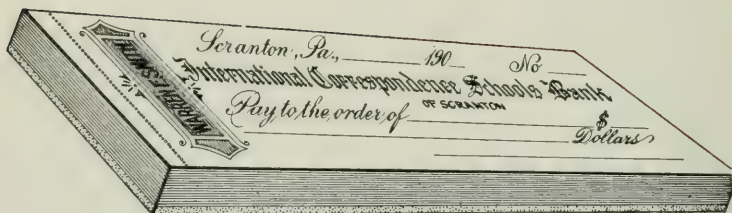 Scranton, Pa., 190 No
International Correspondence Schools Bank
OF SCRANTON
Pay to the order of $
Dollars